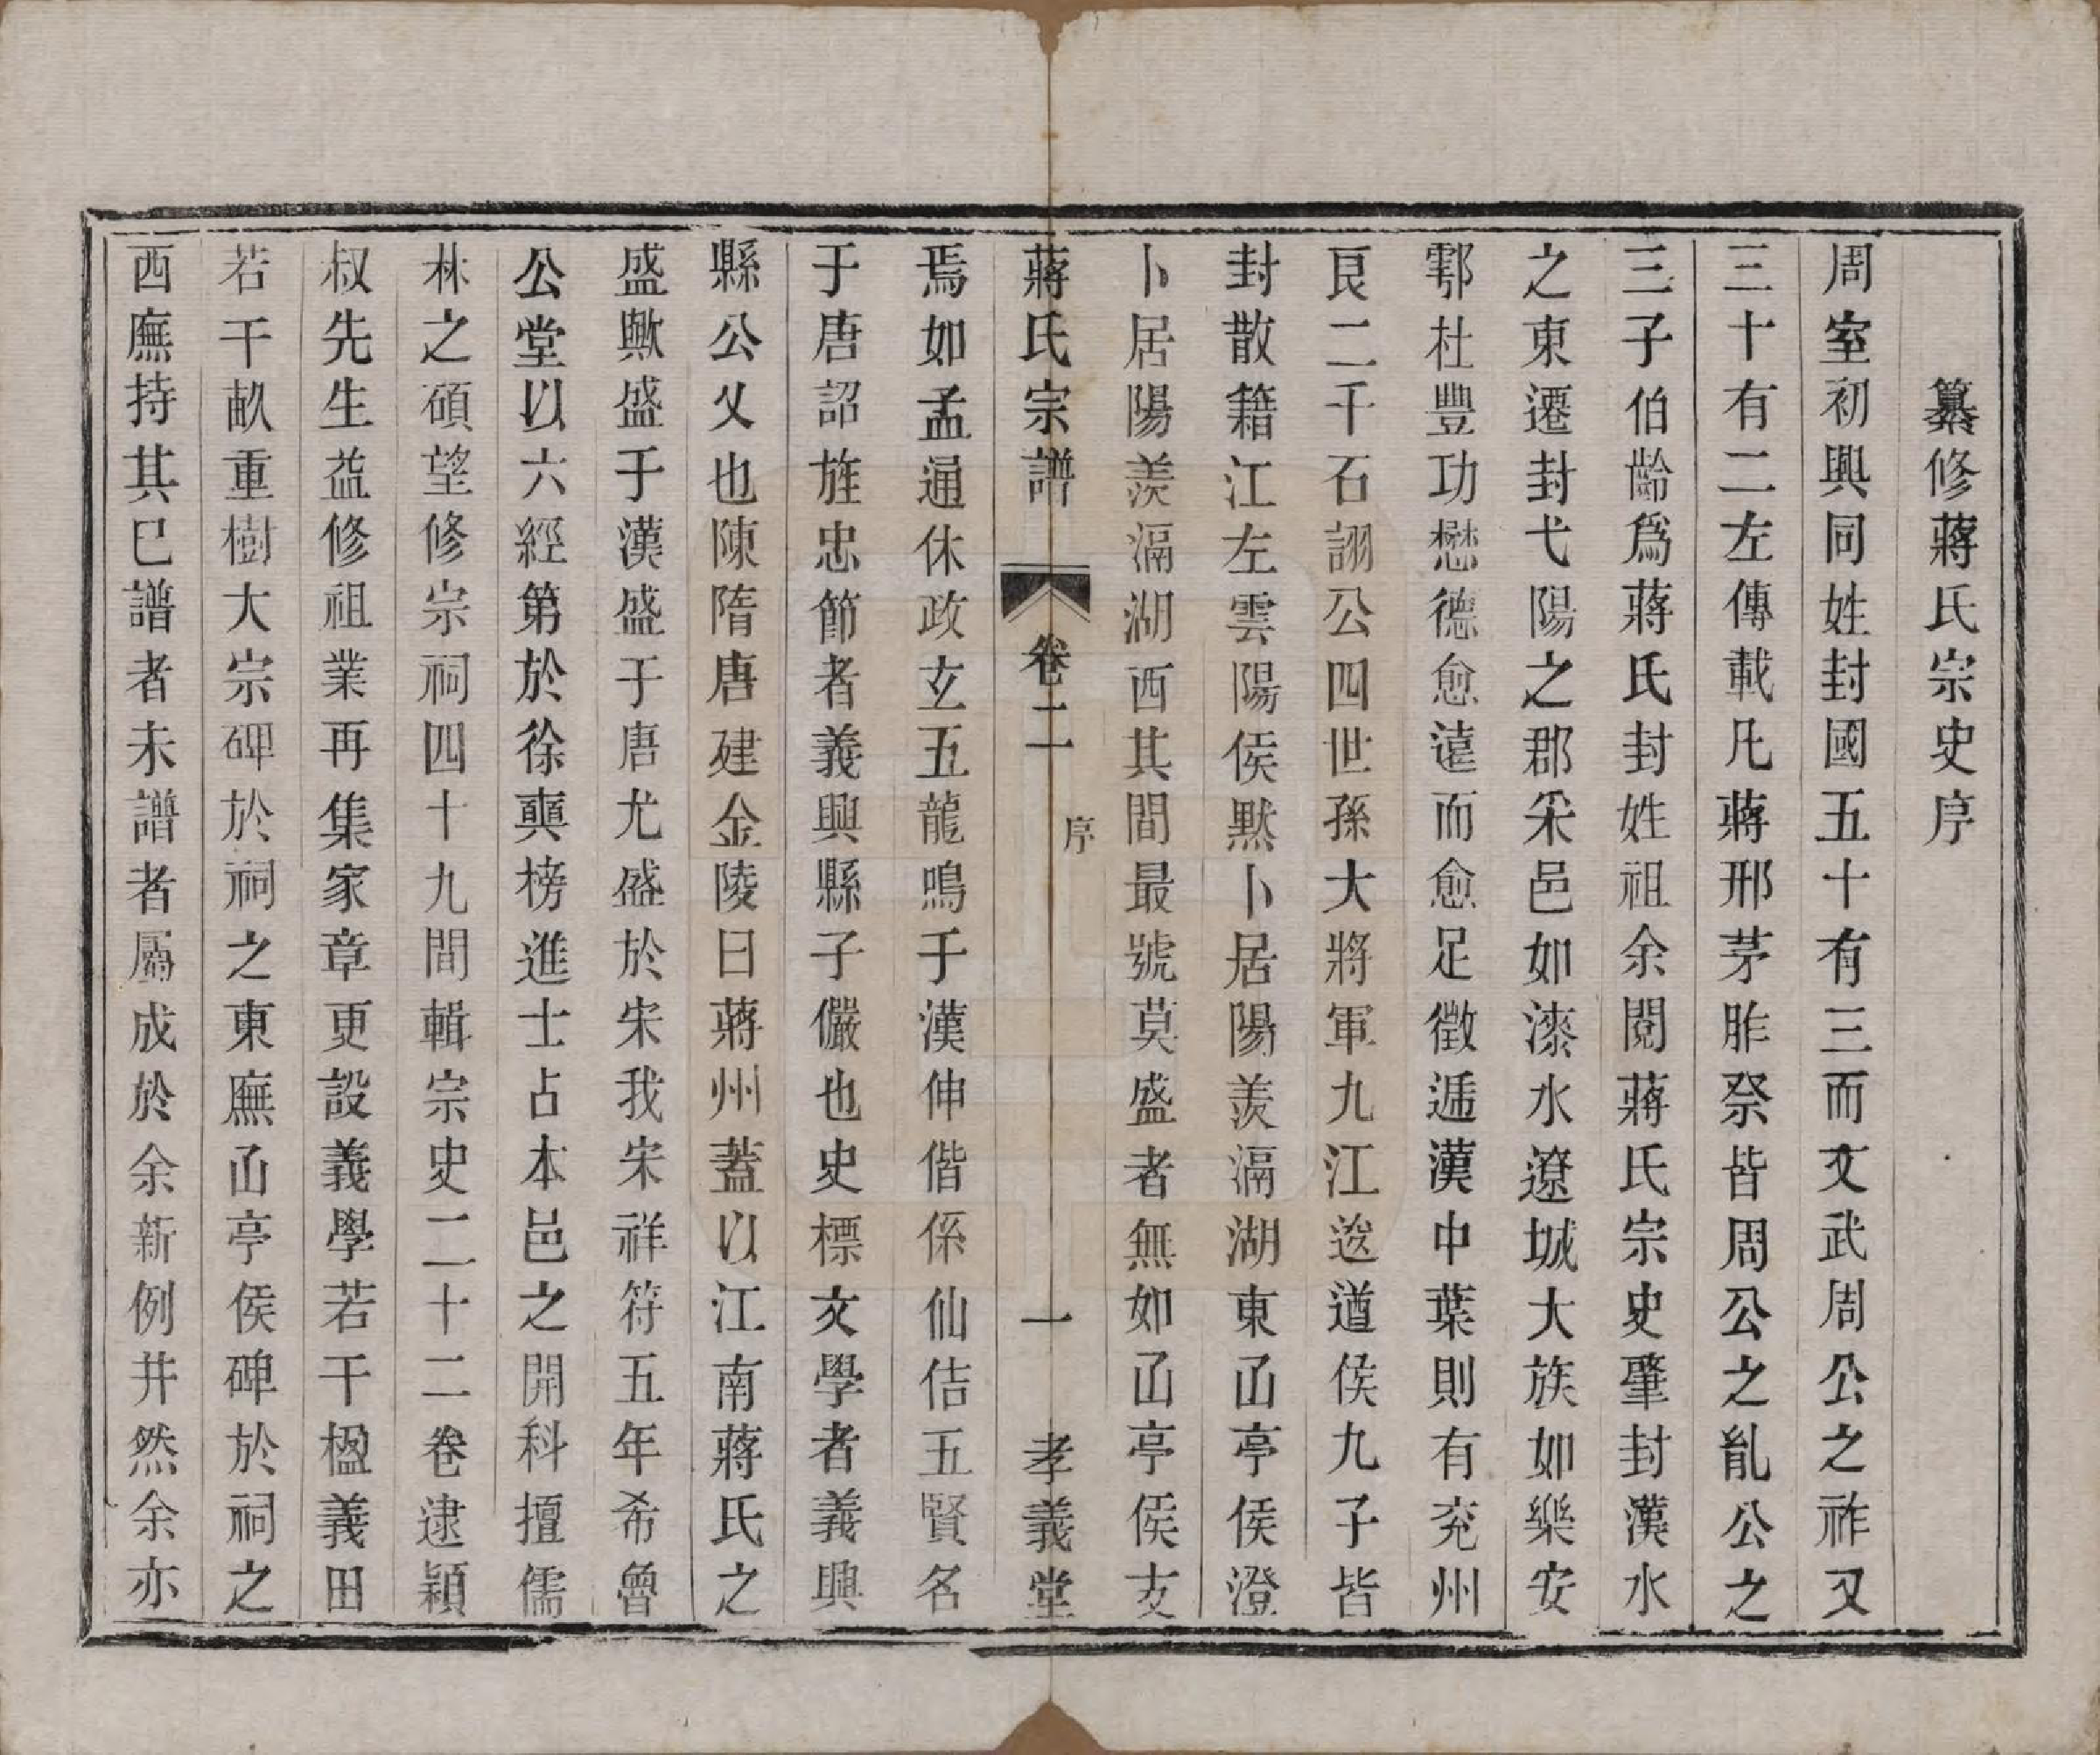 纂修蔣氏宗史序
周室初興同姓封國五十有三而文武周公之祚又
三十有二左傳載凡蔣邢茅胙祭皆周公之胤公之
三子伯齡爲蔣氏封姓祖余閱蔣氏宗史肇封漢水
之東遷封弋陽之郡采邑如漆水遼城大族如樂安
鄠杜豐功懋德愈遠而愈足徵遞漢中葉則有兖州
良二千石詡公四世孫大將軍九江逡遒侯九子皆
封散籍江左雲陽侯默卜居陽羨滆湖東凾亭侯澄
卜居陽羨滆湖西其間最號莫盛者無如凾亭侯支
蔣氏宗譜 卷二 序 一 孝義堂
焉如孟通休政玄五龍鳴于漢伸偕係仙佶五賢名
于唐詔旌忠節者義興縣子儼也史標文學者義興
縣公乂也陳隋唐建金陵曰蔣州蓋以江南蔣氏之
盛歟盛于漢盛于唐尤盛於宋我宋祥符五年希魯
公堂以六經第於徐奭榜進士占本邑之開科擅儒
林之碩望修宗祠四十九間輯宗史二十二卷逮穎
叔先生益修祖業再集家章更設義學若干楹義田
若干畝重樹大宗碑於祠之東廡凾亭侯碑於祠之
西廡持其已譜者未譜者屬成於余新例井然余亦